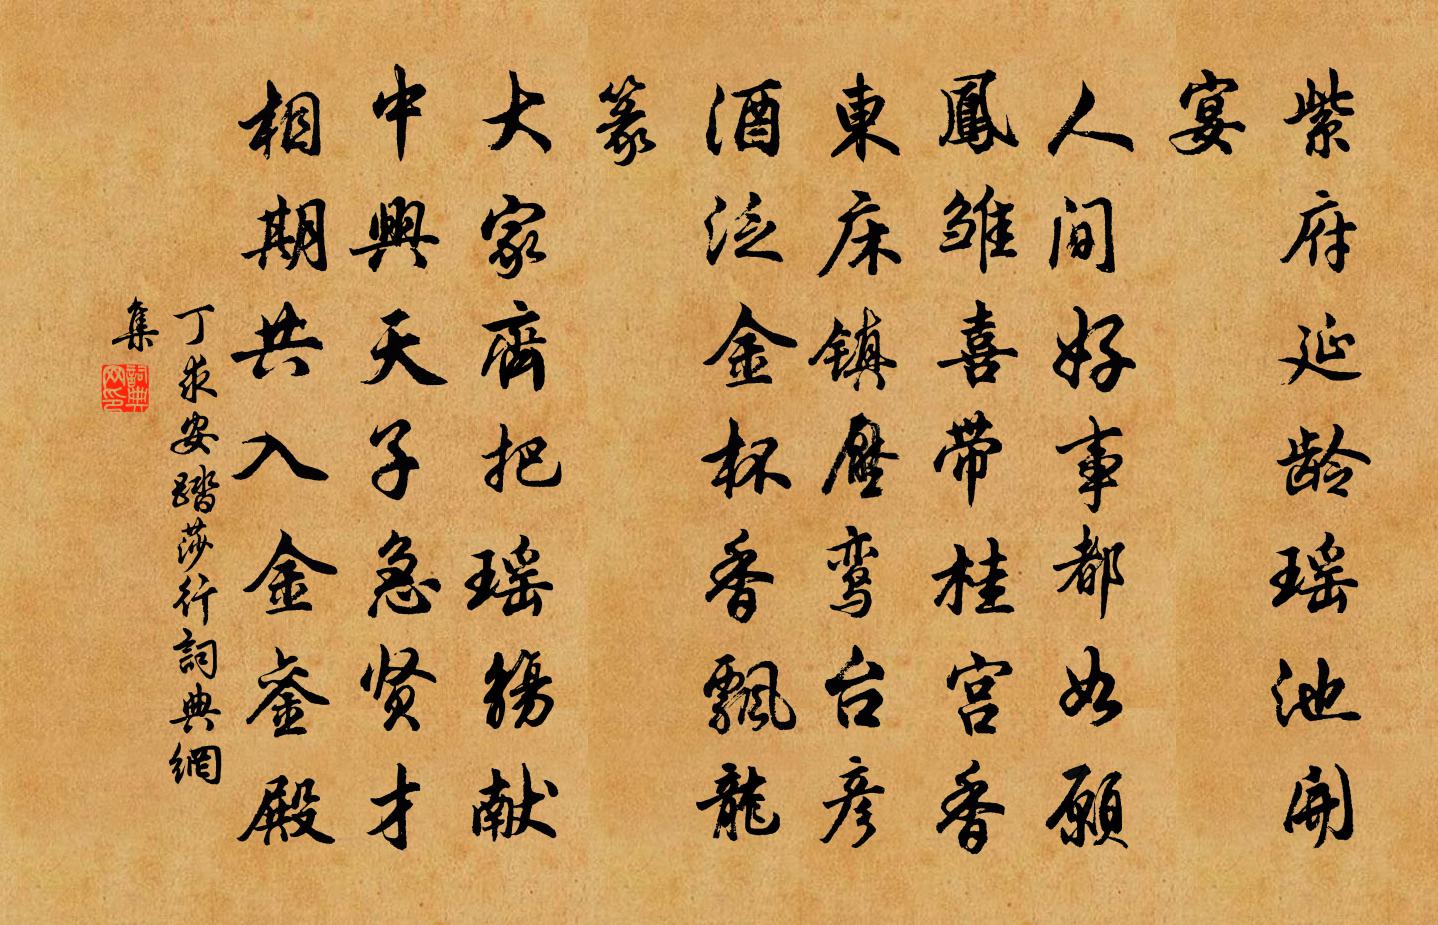 紫府延龄瑶池開
宴
人间好事都如願
鳳雏喜带桂宫香
東床镇壓鸾台彦
酒泛金杯香飄龍
篆
大家齊把瑶觞献
中興天子急贤才
相期共入金銮殿
丁求安踏莎行詞典網
集
詞典網印